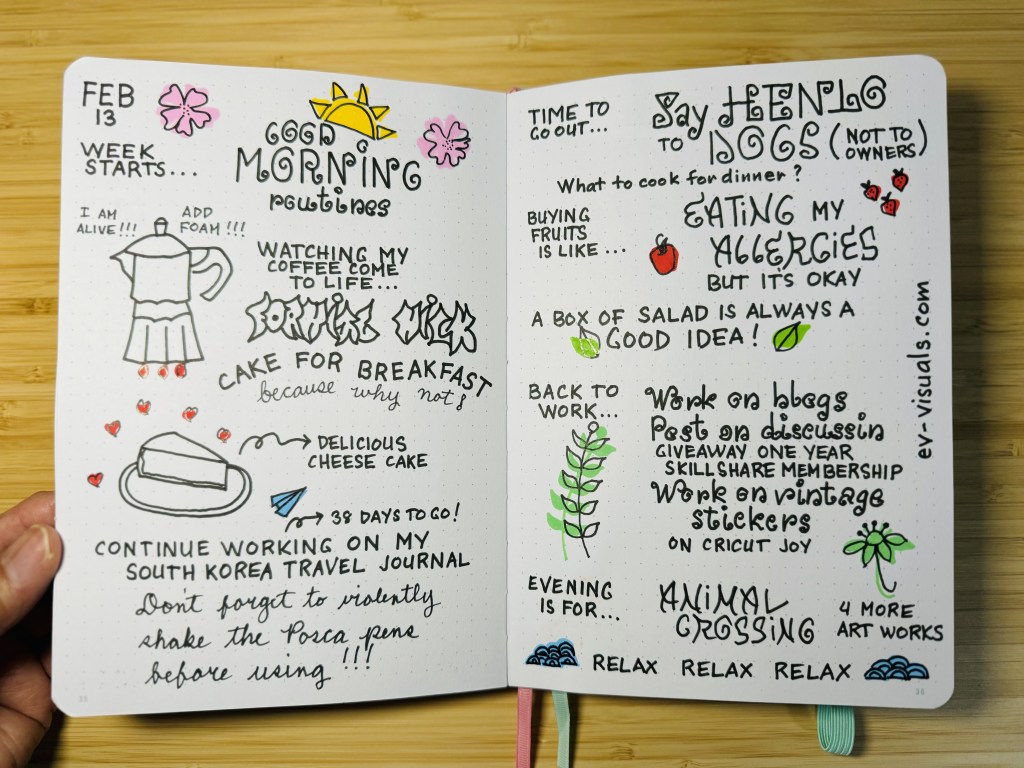 FEB
13
WEEK
STARTS...
GOOD
MORNING
routines
I AM
ALIVE!!!
ADD
FOAM!!!
WATCHING MY
COFFEE COME
TO LIFE...
FOAMING MILK
CAKE FOR BREAKFAST
because why not?
DELICIOUS
CHEESE CAKE
38 DAYS TO GO!
CONTINUE WORKING ON MY
SOUTH KOREA TRAVEL JOURNAL
Don't forget to violently
shake the Posca pens
before using!!!
TIME TO
GO OUT...
Say HENLO
TO DOGS (NOT TO
OWNERS)
What to cook for dinner?
BUYING
FRUITS
IS LIKE...
EATING MY
ALLERGIES
BUT IT'S OKAY
A BOX OF SALAD IS ALWAYS A
GOOD IDEA!
BACK TO
WORK...
Work on blogs
Post on discussin
GIVEAWAY ONE YEAR
SKILLSHARE MEMBERSHIP
Work on vintage
stickers
ON CRICUT JOY
EVENING
IS FOR...
ANIMAL
CROSSING
4 MORE
ART WORKS
RELAX RELAX RELAX
ev-visuals.com